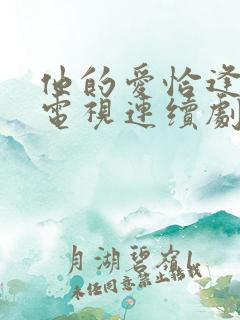 他的愛恰逢
電視連續劇
月湖碧嶺
未经同意禁止转载